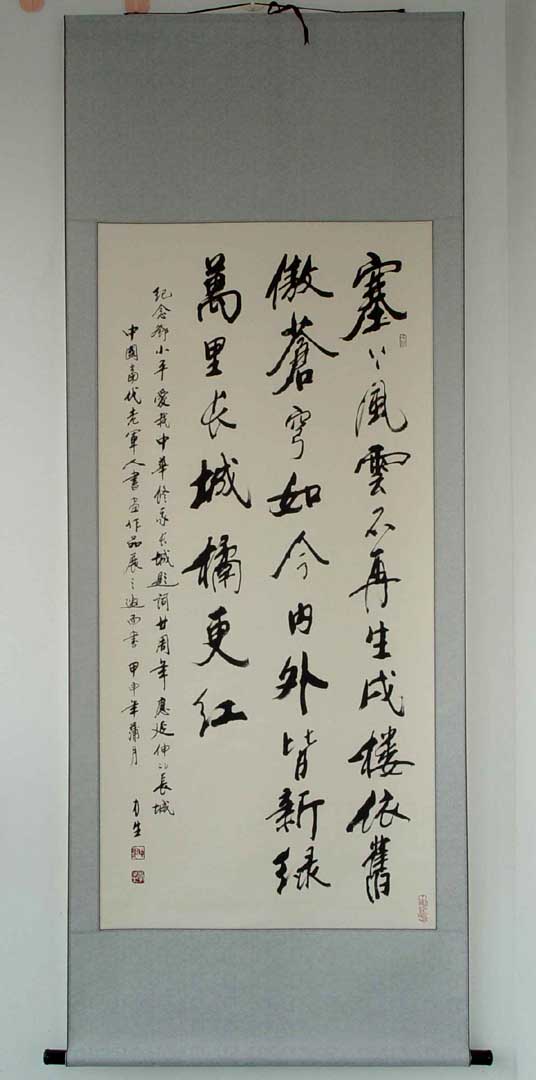 塞上風雲不再生戍楼依舊
傲蒼穹如今内外皆新绿
萬里长城橘更红
紀念鄧小平愛我中華修我长城題詞廿周年應延伸的長城
中國當代老軍人書画作品展之邀而書 甲申年蒲月 力生